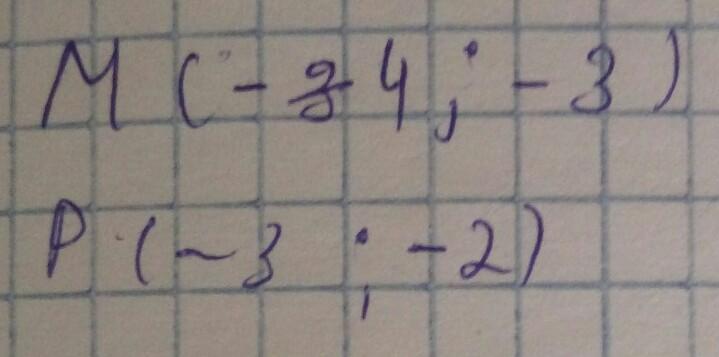 M (-4; -3)
P (-3; -2)